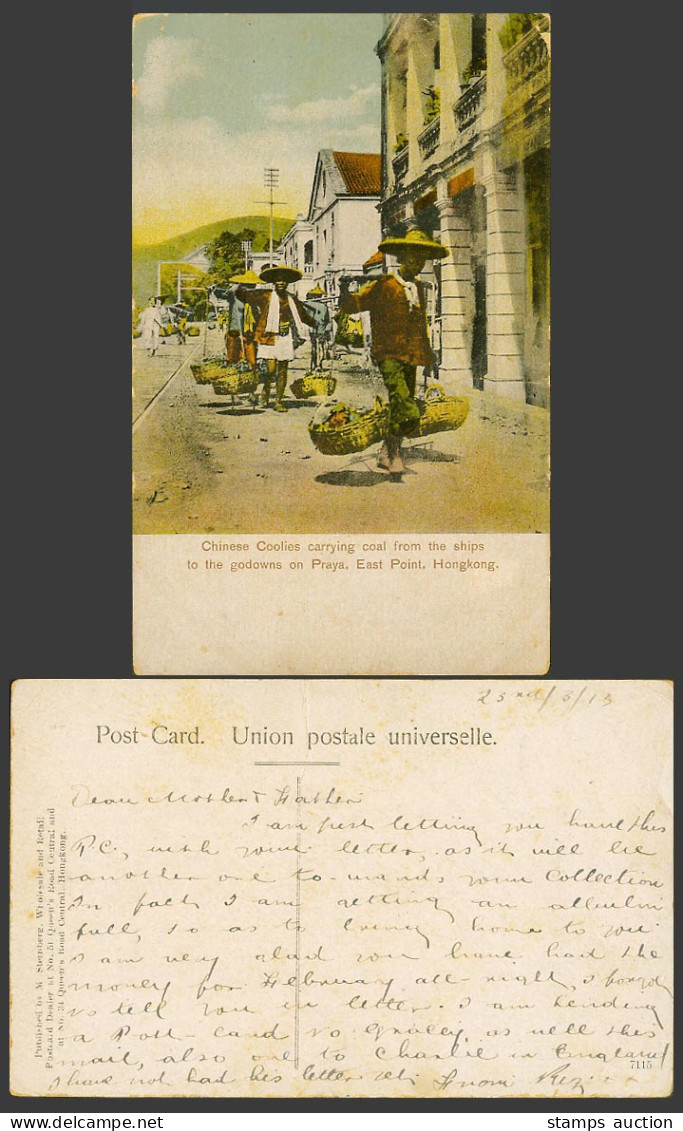 Chinese Coolies carrying coal from the ships
to the godowns on Praya, East Point, Hongkong.
23rd/3/13
Post Card. Union postale universelle.
Dear Mother & Father
I am just letting you have this
P.C., with your letter, as it will be
another one to-wards your Collection
In fact I am getting an
full, so as to bring home to you
I am very glad you have had the
money for February all-right, I forgot
to tell you in letter. I am sending
a Post-card to Gracey, as well this
mail, also one to Charlie in England
I have not had his letter yet. From Reg.
Published by M. Sternberg, Wholesale and Retail
Postcard Dealer at No. 51 Queen's Road Central and
at No. 34 Queen's Road Central, Hongkong.
7115
www.delcampe.net
stamps auction